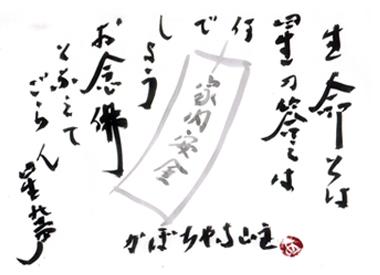 生命とは
星の答えは
何
で
しょう
お念佛
となえて
ごらん
家内安全
かぼちゃ寺山主